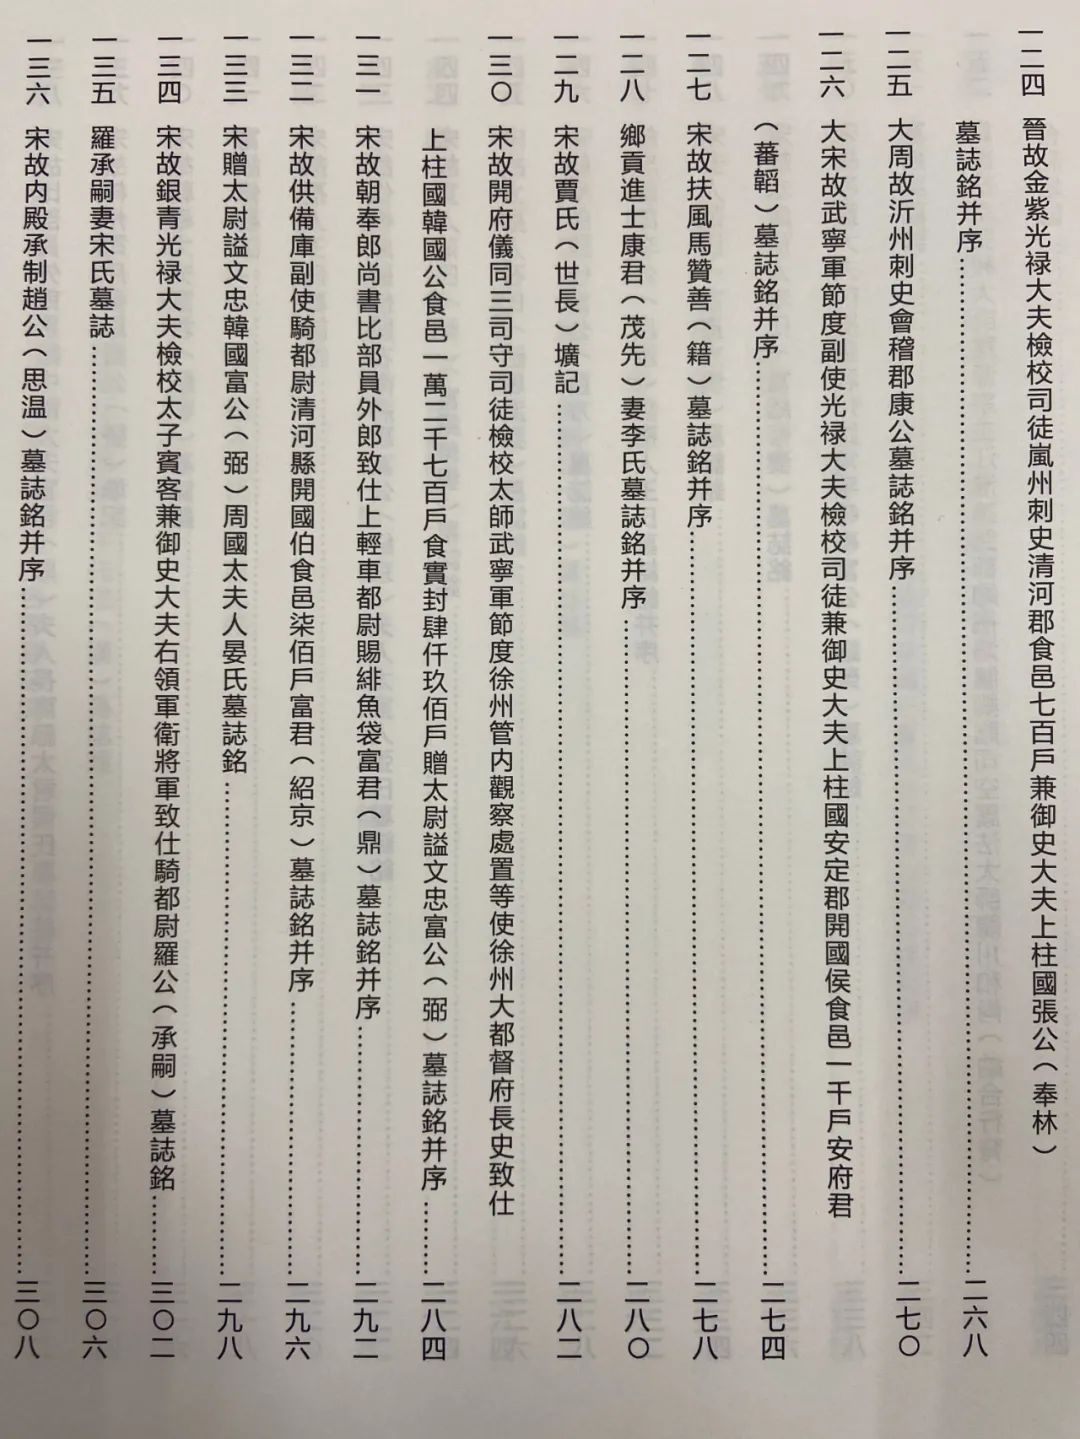 一二四 晉故金紫光禄大夫檢校司徒嵐州刺史清河郡食邑七百戶兼御史大夫上柱國張公（奉林）
墓誌銘并序……二六八
一二五 大周故沂州刺史會稽郡康公墓誌銘并序……二七〇
一二六 大宋故武寧軍節度副使光禄大夫檢校司徒兼御史大夫上柱國安定郡開國侯食邑一千戶安府君
（蕃韜）墓誌銘并序……二七四
一二七 宋故扶風馬贊善（籍）墓誌銘并序……二七八
一二八 鄉貢進士康君（茂先）妻李氏墓誌銘并序……二八〇
一二九 宋故賈氏（世長）壙記……二八二
一三〇 宋故開府儀同三司守司徒檢校太師武寧軍節度徐州管内觀察處置等使徐州大都督府長史致仕
上柱國韓國公食邑一萬二千七百戶食實封肆仟玖佰戶贈太尉謚文忠富公（弼）墓誌銘并序……二八四
一三一 宋故朝奉郎尚書比部員外郎致仕上輕車都尉賜緋魚袋富君（鼎）墓誌銘并序……二九二
一三二 宋故供備庫副使騎都尉清河縣開國伯食邑柒佰戶富君（紹京）墓誌銘并序……二九六
一三三 宋贈太尉謚文忠韓國富公（弼）周國太夫人晏氏墓誌銘……二九八
一三四 宋故銀青光禄大夫檢校太子賓客兼御史大夫右領軍衛將軍致仕騎都尉羅公（承嗣）墓誌銘……三〇二
一三五 羅承嗣妻宋氏墓誌……三〇六
一三六 宋故内殿承制趙公（思温）墓誌銘并序……三〇八